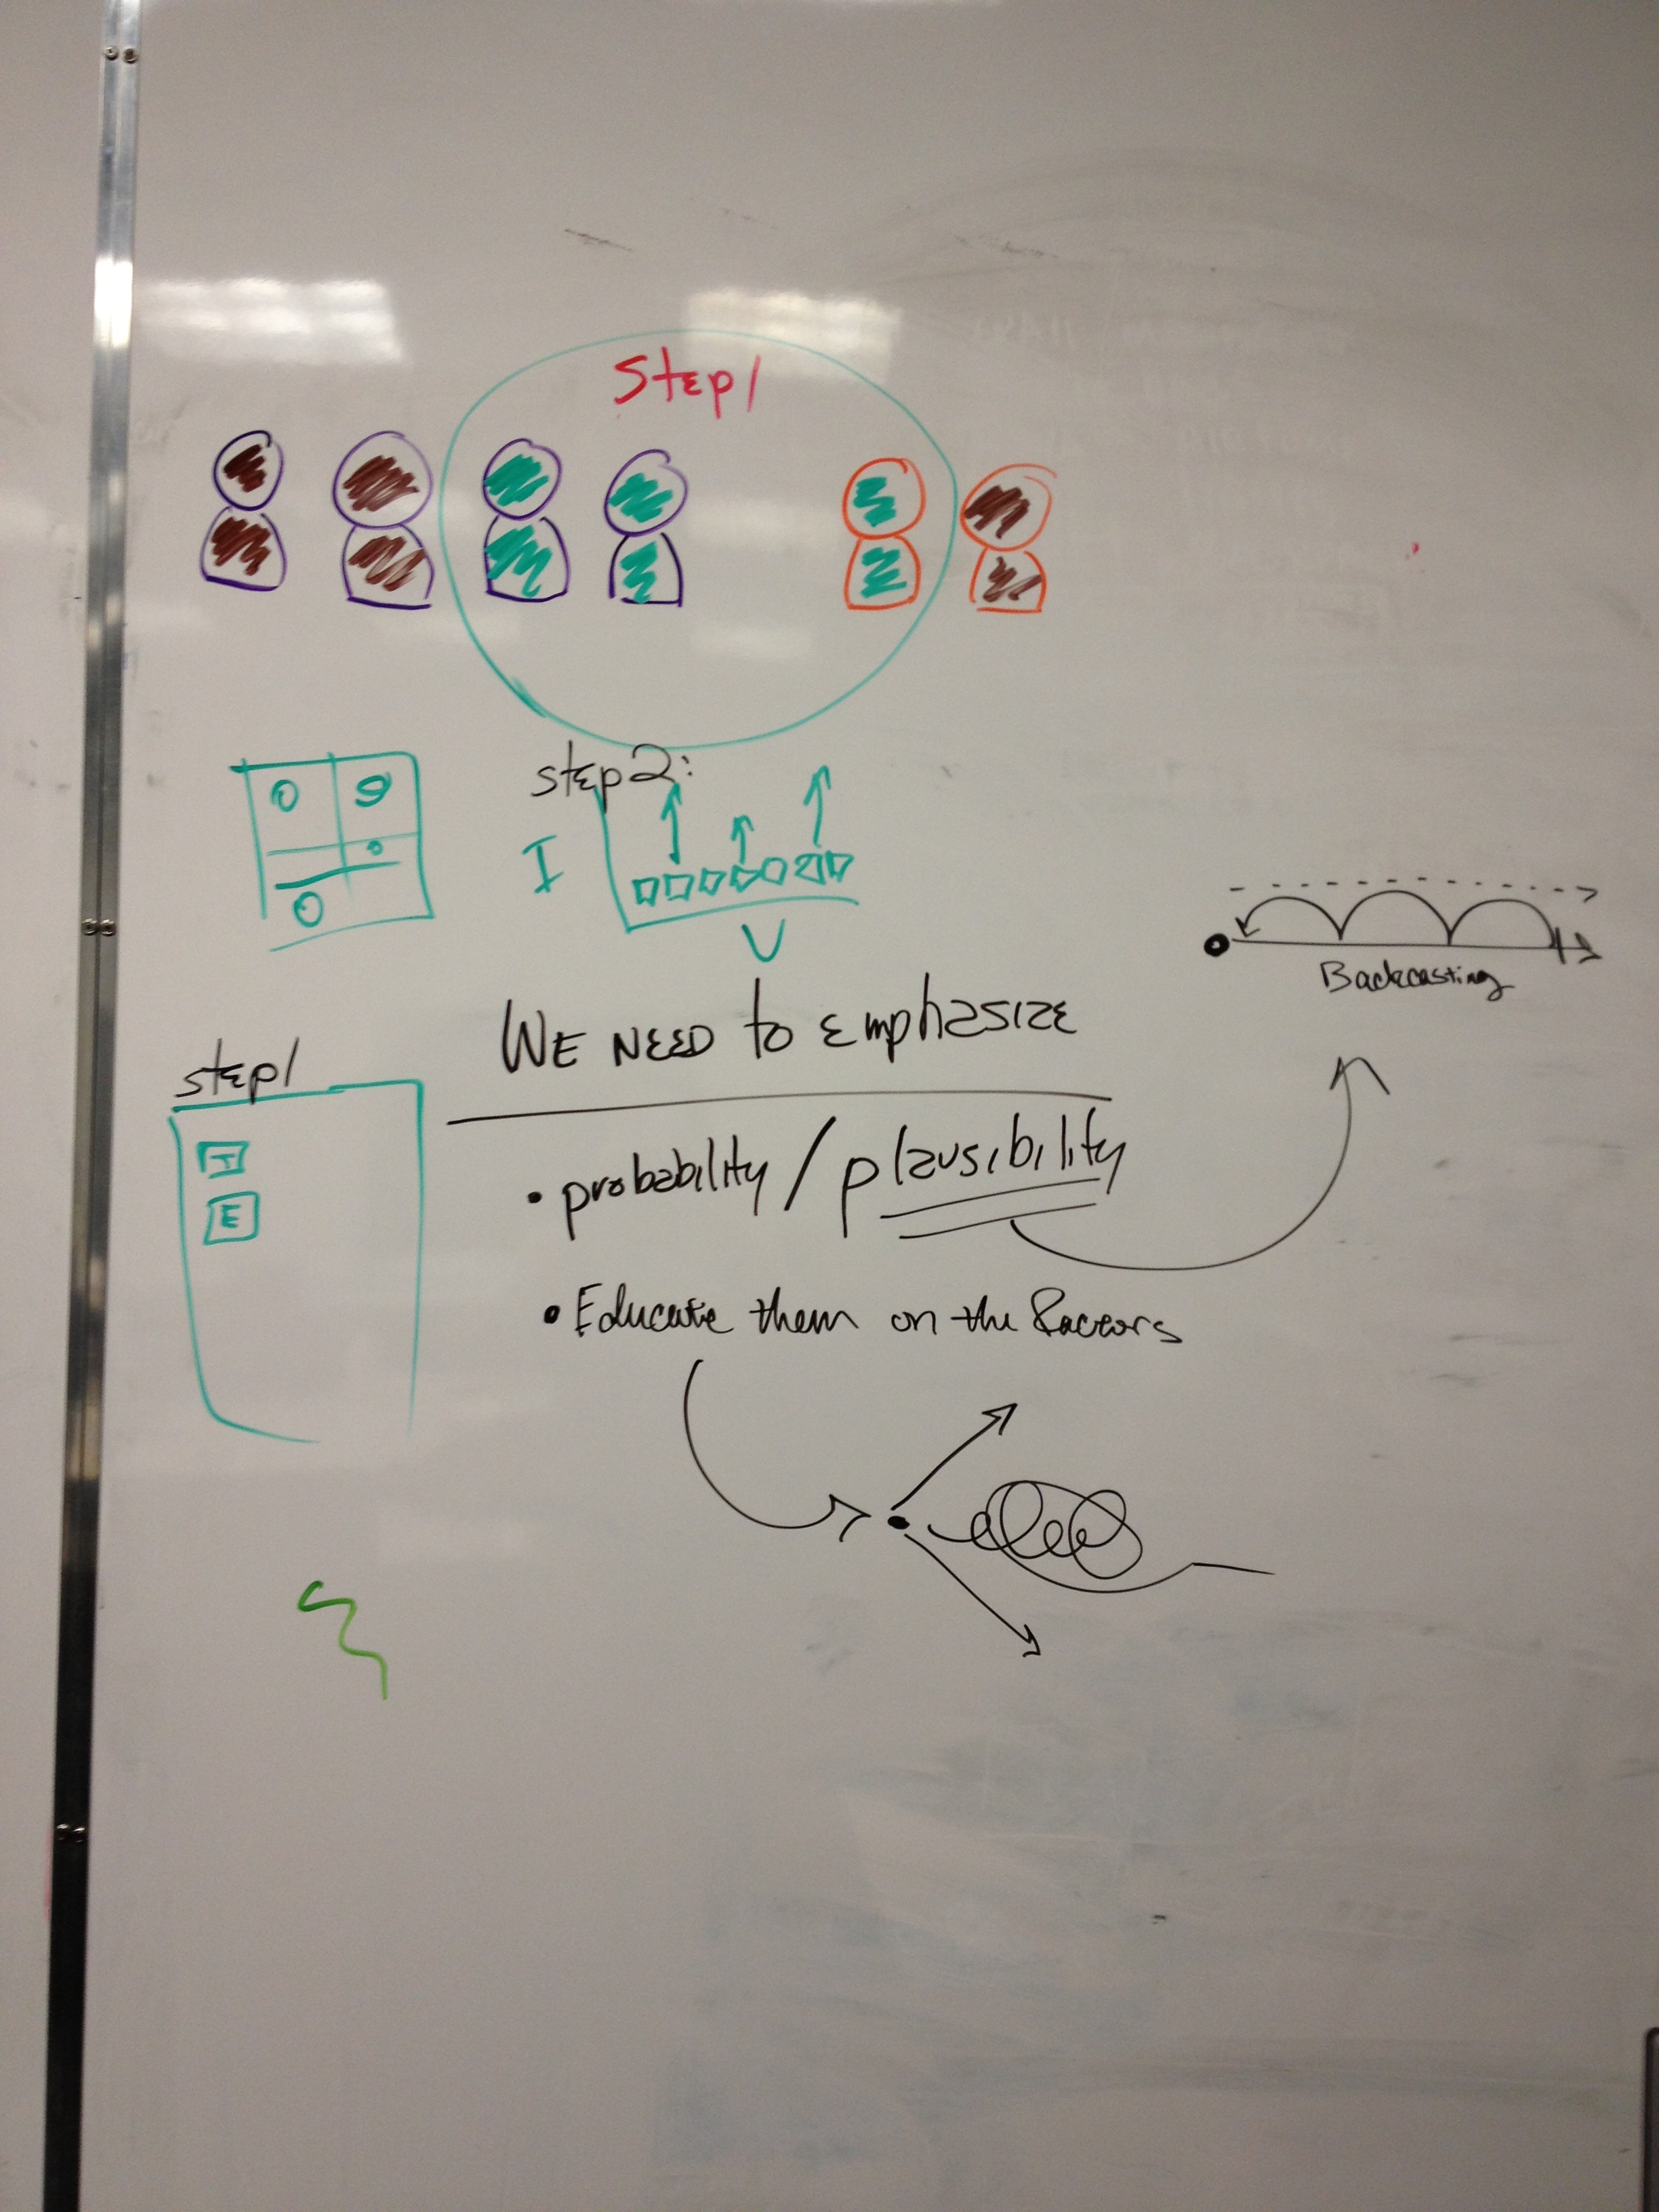 Step 1
step 2:
I
U
Backcasting
WE NEED to Emphasize
step 1
I
E
• probability / plausibility
• Educate them on the factors